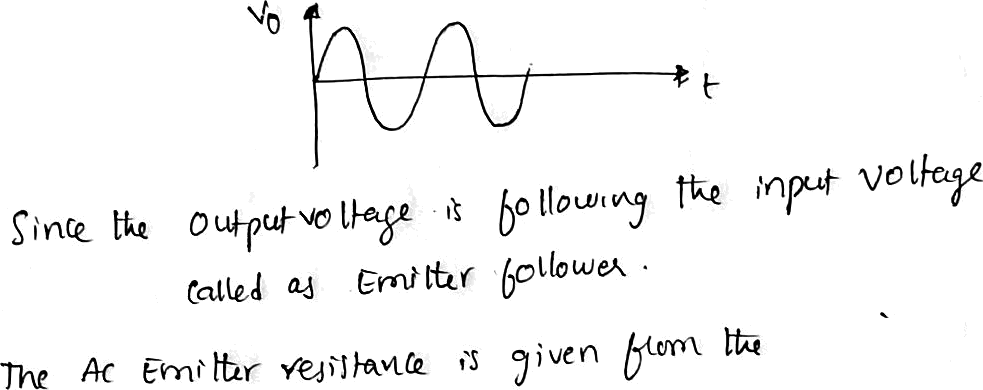 Vo
t
Since the output voltage is following the input voltage
called as Emitter follower.
The AC Emitter resistance is given from the